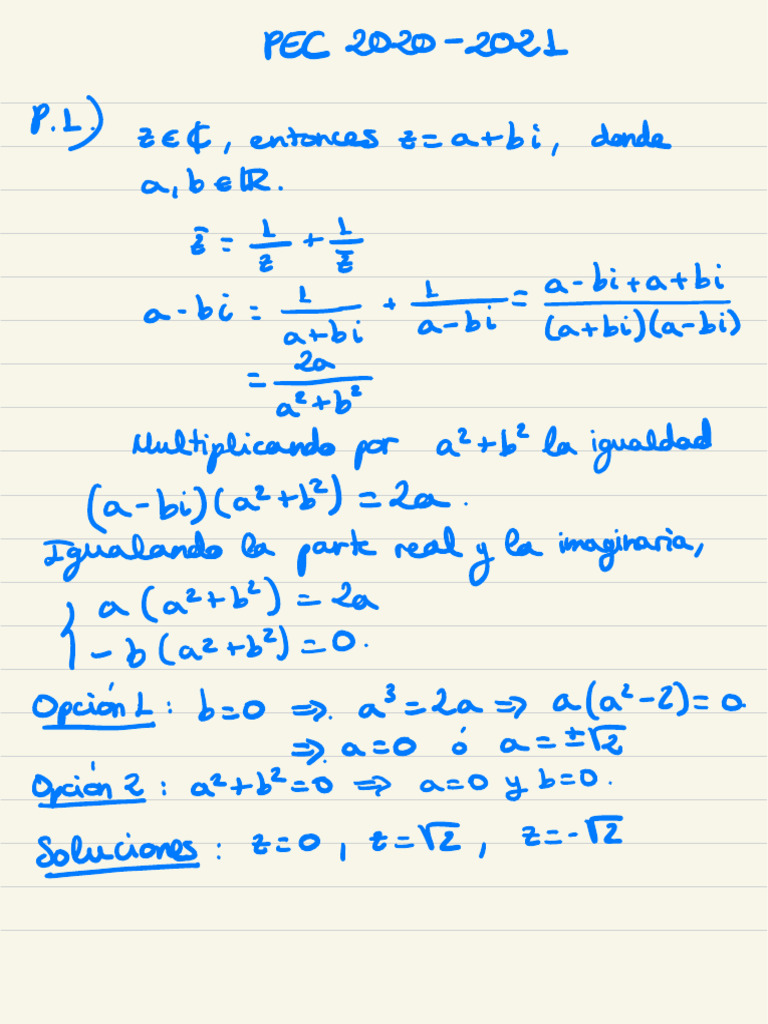 PEC 2020-2021
P.1.) z∈ℂ, entonces z=a+bi, donde
a, b∈ℝ.
z̄ = 1/z + 1/z̄
a-bi = 1/(a+bi) + 1/(a-bi) = (a-bi+a+bi)/((a+bi)(a-bi))
= 2a/(a²+b²)
Multiplicando por a²+b² la igualdad
(a-bi)(a²+b²)=2a.
Igualando la parte real y la imaginaria,
{ a(a²+b²)=2a
-b(a²+b²)=0.
Opción 1: b=0 ⇒. a³=2a ⇒ a(a²-2)=0
⇒. a=0 ó a=±√2
Opción 2: a²+b²=0 ⇒ a=0 y b=0.
Soluciones: z=0, z=√2, z=-√2